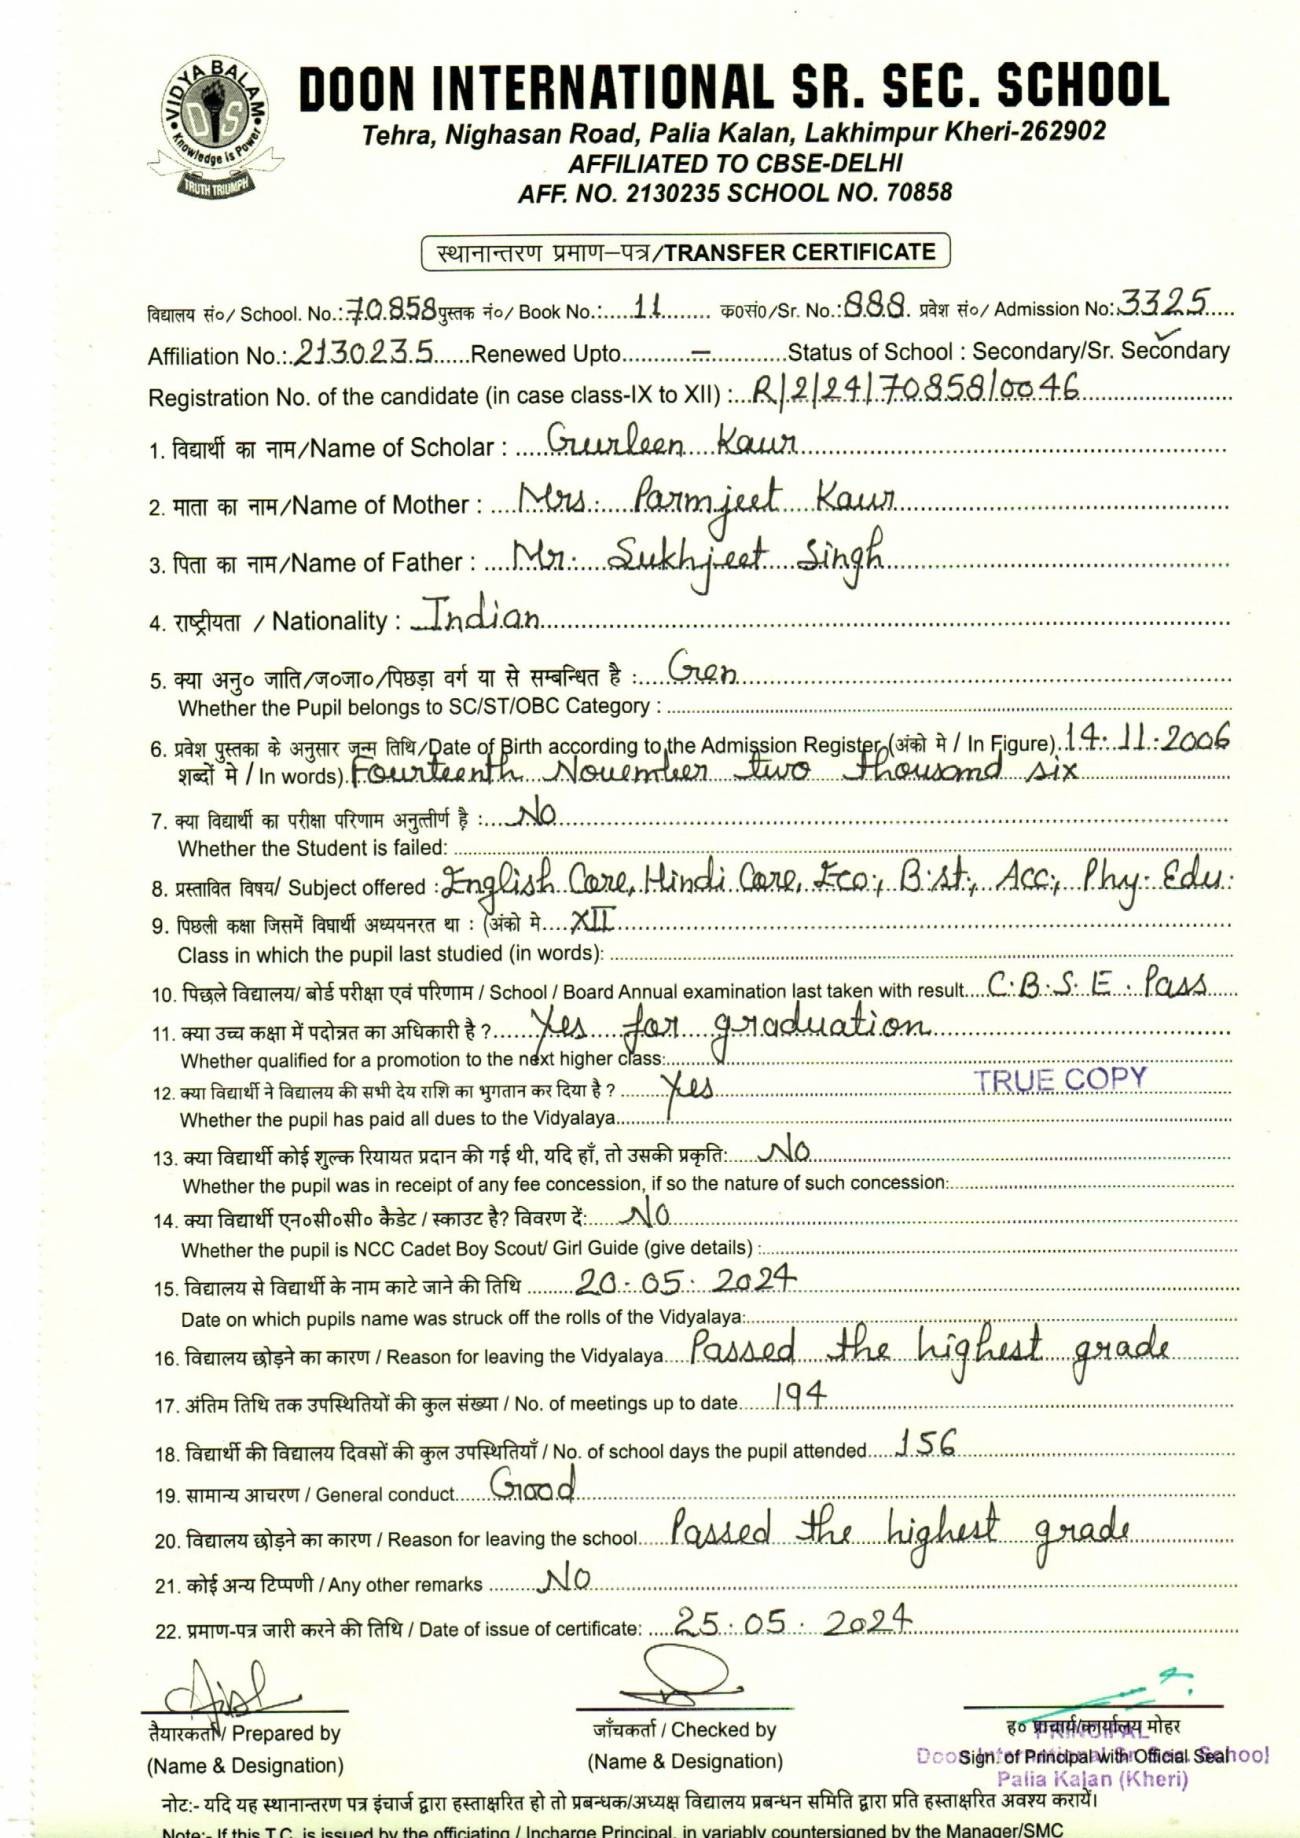 VIDYA BALAM
DIS
Knowledge is Power
TRUTH TRIUMPH
DOON INTERNATIONAL SR. SEC. SCHOOL
Tehra, Nighasan Road, Palia Kalan, Lakhimpur Kheri-262902
AFFILIATED TO CBSE-DELHI
AFF. NO. 2130235 SCHOOL NO. 70858
स्थानान्तरण प्रमाण-पत्र/TRANSFER CERTIFICATE
विद्यालय सं०/ School. No.: 70858 पुस्तक नं०/ Book No.: 11 क०सं०/Sr. No.: 888 प्रवेश सं०/ Admission No: 3325
Affiliation No.: 2130235 Renewed Upto — Status of School : Secondary/Sr. Secondary ✓
Registration No. of the candidate (in case class-IX to XII) : R/2/24/70858/0046
1. विद्यार्थी का नाम/Name of Scholar : Gurleen Kaur
2. माता का नाम/Name of Mother : Mrs. Parmjeet Kaur
3. पिता का नाम/Name of Father : Mr. Sukhjeet Singh
4. राष्ट्रीयता / Nationality : Indian
5. क्या अनु० जाति/ज०जा०/पिछड़ा वर्ग या से सम्बन्धित है : Gen
Whether the Pupil belongs to SC/ST/OBC Category :
6. प्रवेश पुस्तका के अनुसार जन्म तिथि/Date of Birth according to the Admission Register (अंको मे / In Figure) 14.11.2006
शब्दों मे / In words) Fourteenth November two thousand six
7. क्या विद्यार्थी का परीक्षा परिणाम अनुत्तीर्ण है : No
Whether the Student is failed:
8. प्रस्तावित विषय/ Subject offered : English Core, Hindi Core, Eco., B.st., Acc., Phy. Edu.
9. पिछली कक्षा जिसमें विधार्थी अध्ययनरत था : (अंको मे XII
Class in which the pupil last studied (in words):
10. पिछले विद्यालय/ बोर्ड परीक्षा एवं परिणाम / School / Board Annual examination last taken with result C.B.S.E. Pass
11. क्या उच्च कक्षा में पदोन्नत का अधिकारी है ? Yes for graduation
Whether qualified for a promotion to the next higher class:
12. क्या विद्यार्थी ने विद्यालय की सभी देय राशि का भुगतान कर दिया है ? Yes TRUE COPY
Whether the pupil has paid all dues to the Vidyalaya
13. क्या विद्यार्थी कोई शुल्क रियायत प्रदान की गई थी, यदि हाँ, तो उसकी प्रकृति: No
Whether the pupil was in receipt of any fee concession, if so the nature of such concession:
14. क्या विद्यार्थी एन०सी०सी० कैडेट / स्काउट है? विवरण दें: No
Whether the pupil is NCC Cadet Boy Scout/ Girl Guide (give details) :
15. विद्यालय से विद्यार्थी के नाम काटे जाने की तिथि 20.05.2024
Date on which pupils name was struck off the rolls of the Vidyalaya:
16. विद्यालय छोड़ने का कारण / Reason for leaving the Vidyalaya Passed the highest grade
17. अंतिम तिथि तक उपस्थितियों की कुल संख्या / No. of meetings up to date 194
18. विद्यार्थी की विद्यालय दिवसों की कुल उपस्थितियाँ / No. of school days the pupil attended 156
19. सामान्य आचरण / General conduct Good
20. विद्यालय छोड़ने का कारण / Reason for leaving the school Passed the highest grade
21. कोई अन्य टिप्पणी / Any other remarks No
22. प्रमाण-पत्र जारी करने की तिथि / Date of issue of certificate: 25.05.2024
तैयारकर्ता / Prepared by जाँचकर्ता / Checked by ह० प्राचार्य/कार्यालय मोहर
PRINCIPAL
(Name & Designation) (Name & Designation) Sign. of Principal with Official Seal
Doon International Sr. Sec. School
Palia Kalan (Kheri)
नोट:- यदि यह स्थानान्तरण पत्र इंचार्ज द्वारा हस्ताक्षरित हो तो प्रबन्धक/अध्यक्ष विद्यालय प्रबन्धन समिति द्वारा प्रति हस्ताक्षरित अवश्य करायें।
Note:- If this T.C. is issued by the officiating / Incharge Principal, in variably countersigned by the Manager/SMC